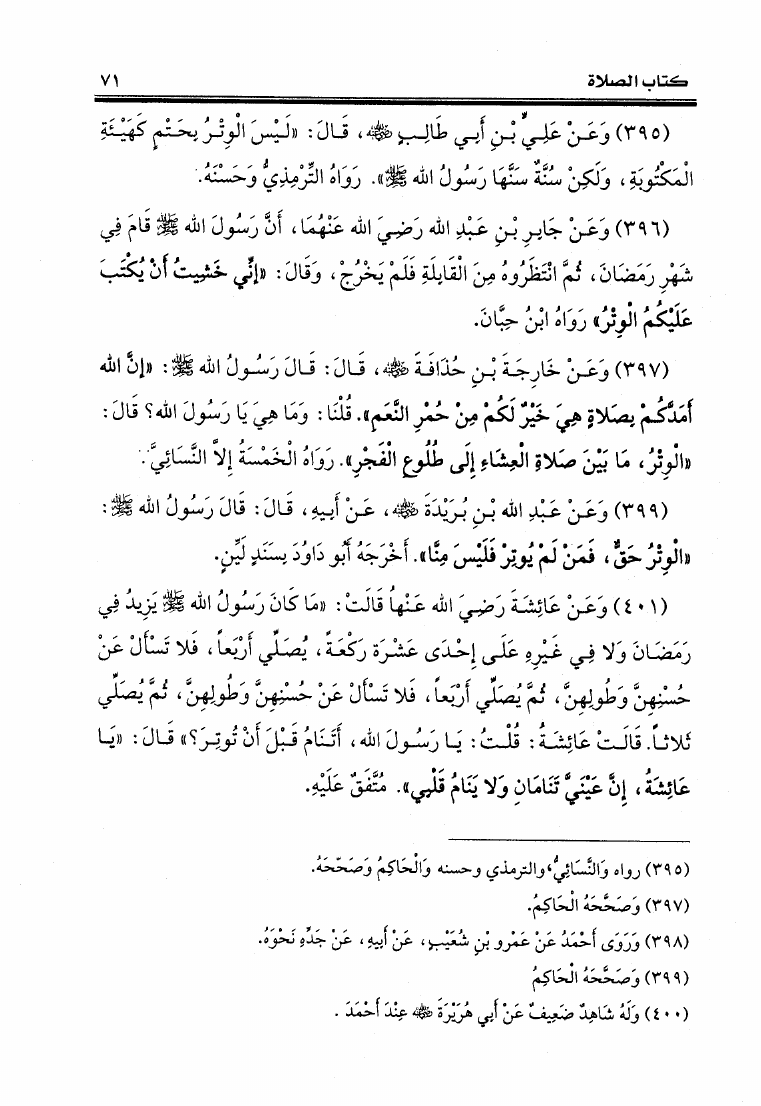 كتاب الصلاة ٧١
(٣٩٥) وَعَنْ عَلِيِّ بْنِ أَبي طَالِبٍ ﷺ، قَالَ: «لَيْسَ الْوِتْرُ بِحَتْمٍ كَهَيْئَةِ
الْمَكْتُوبَةِ، وَلَكِنْ سُنَّةٌ سَنَّهَا رَسُولُ الله ﷺ». رَوَاهُ التِّرْمِذِيُّ وَحَسَّنَهُ.
(٣٩٦) وَعَنْ جَابِرِ بْنِ عَبْدِ الله رَضِيَ الله عَنْهُمَا، أَنَّ رَسُولَ الله ﷺ قَامَ فِي
شَهْرِ رَمَضَانَ، ثُمَّ انْتَظَرُوهُ مِنَ الْقَابِلَةِ فَلَمْ يَخْرُجْ، وَقَالَ: «إِنِّي خَشِيتُ أَنْ يُكْتَبَ
عَلَيْكُمُ الْوِتْرُ» رَوَاهُ ابْنُ حِبَّانَ.
(٣٩٧) وَعَنْ خَارِجَةَ بْنِ حُذَافَةَ ﵁، قَالَ: قَالَ رَسُولُ الله ﷺ: «إِنَّ الله
أَمَدَّكُمْ بِصَلاةٍ هِيَ خَيْرٌ لَكُمْ مِنْ حُمْرِ النَّعَمِ». قُلْنَا: وَمَا هِيَ يَا رَسُولَ الله؟ قَالَ:
«الْوِتْرُ، مَا بَيْنَ صَلاةِ الْعِشَاءِ إِلَى طُلُوعِ الْفَجْرِ». رَوَاهُ الْخَمْسَةُ إِلاَّ النَّسَائِيَّ.
(٣٩٩) وَعَنْ عَبْدِ الله بْنِ بُرَيْدَةَ ﵁، عَنْ أَبِيهِ، قَالَ: قَالَ رَسُولُ الله ﷺ:
«الْوِتْرُ حَقٌّ، فَمَنْ لَمْ يُوتِرْ فَلَيْسَ مِنَّا». أَخْرَجَهُ أَبُو دَاوُدَ بِسَنَدٍ لَيِّنٍ.
(٤٠١) وَعَنْ عَائِشَةَ رَضِيَ الله عَنْهاُ قَالَتْ: «مَا كَانَ رَسُولُ الله ﷺ يَزِيدُ فِي
رَمَضَانَ وَلا فِي غَيْرِهِ عَلَى إِحْدَى عَشْرَةَ رَكْعَةً، يُصَلِّي أَرْبَعاً، فَلا تَسْأَلْ عَنْ
حُسْنِهِنَّ وَطُولِهِنَّ، ثُمَّ يُصَلِّي أَرْبَعاً، فَلا تَسْأَلْ عَنْ حُسْنِهِنَّ وَطُولِهِنَّ، ثُمَّ يُصَلِّي
ثَلاثاً. قَالَتْ عَائِشَةُ: قُلْتُ: يَا رَسُولَ الله، أَتَنَامُ قَبْلَ أَنْ تُوتِرَ؟» قَالَ: «يَا
عَائِشَةُ، إِنَّ عَيْنَيَّ تَنَامَانِ وَلا يَنَامُ قَلْبِي». مُتَّفَقٌ عَلَيْهِ.
(٣٩٥) رواه وَالنَّسَائِيُّ،والترمذي وحسنه وَالْحَاكِمُ وَصَحّحَهُ.
(٣٩٧) وَصَحَّحَهُ الْحَاكِمُ.
(٣٩٨) وَرَوَى أَحْمَدُ عَنْ عَمْرِو بْنِ شُعَيْبٍ، عَنْ أَبِيهِ، عَنْ جَدِّهِ نَحْوَهُ.
(٣٩٩) وَصَحَّحَهُ الْحَاكِمُ
(٤٠٠) وَلَهُ شَاهِدٌ ضَعِيفٌ عَنْ أَبِي هُرَيْرَةَ ﵁ عِنْدَ أَحْمَدَ.